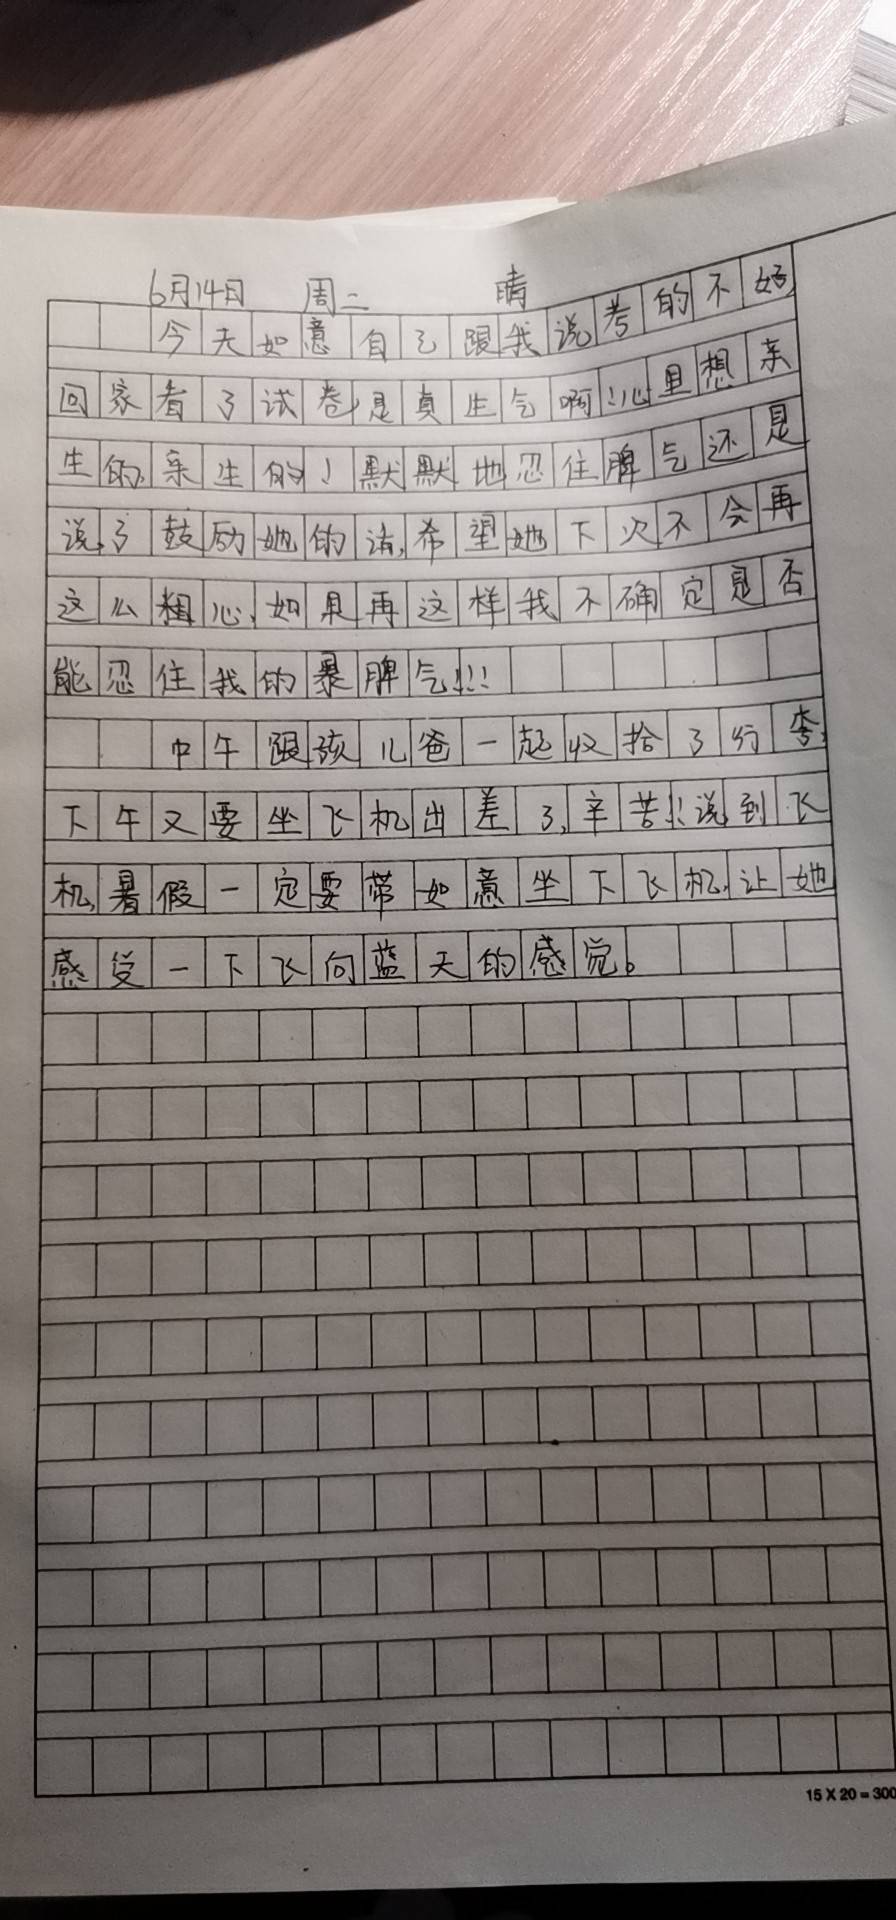 6月14日 周二 晴
今天如意自己跟我说考的不好,
回家看了试卷,是真生气啊!心里想亲
生的,亲生的!默默地忍住脾气还是
说了鼓励她的话,希望她下次不会再
这么粗心,如果再这样我不确定是否
能忍住我的暴脾气!!!
中午跟孩儿爸一起收拾了行李,
下午又要坐飞机出差了,辛苦!!说到飞
机,暑假一定要带如意坐下飞机,让她
感受一下飞向蓝天的感觉。
15 X 20 = 300